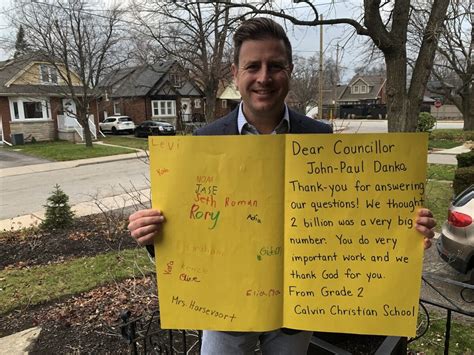 Levi
NOMI
JASE
Seth Roman
Rory
Adia
Eliana
Mrs. Harsevoort
Dear Councillor
John-Paul Danko,
Thank-you for answering
our questions! We thought
2 billion was a very big
number. You do very
important work and we
thank God for you.
From Grade 2
Calvin Christian School